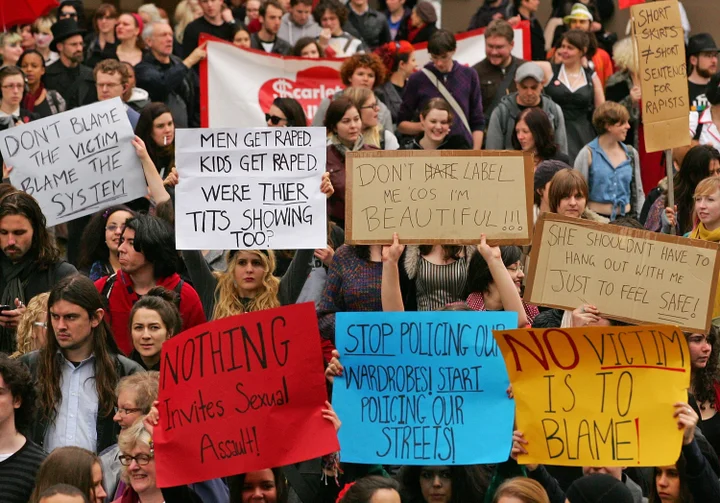 SHORT
SKIRTS
≠ SHORT
SENTENCE
FOR
RAPISTS
$carlet
DON'T BLAME
THE VICTIM
BLAME THE
SYSTEM
MEN GET RAPED,
KIDS GET RAPED,
WERE THIER
TITS SHOWING
TOO?
DON'T HATE LABEL
ME 'COS I'M
BEAUTIFUL!!!
SHE SHOULDN'T HAVE TO
HANG OUT WITH ME
JUST TO FEEL SAFE!
NOTHING
Invites Sexual
Assault!
STOP POLICING OUR
WARDROBES! START
POLICING OUR
STREETS!
NO VICTIM
IS TO
BLAME!